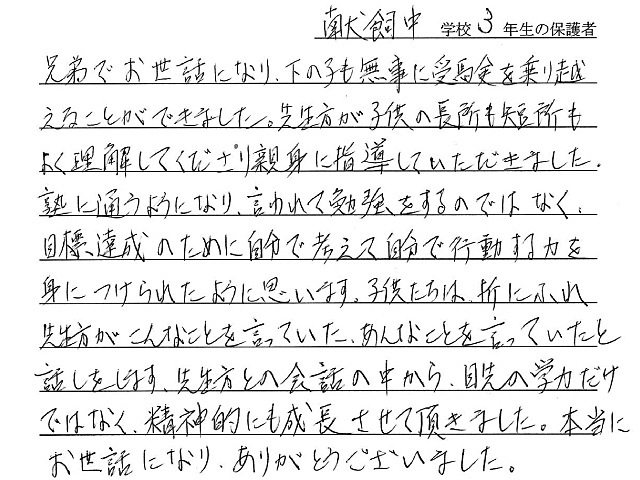 献犬飼中 学校 3 年生の保護者
兄弟でお世話になり、下の子も無事に受験を乗り越
えることができました。先生方が子供の長所も短所も
よく理解してくださり親身に指導していただきました。
塾に通うようになり、言われて勉強をするのではなく、
目標達成のために自分で考えて自分で行動する力を
身につけられたように思います。子供たちは、折にふれ
先生方がこんなことを言っていた、あんなことを言っていたと
話しをします。先生方との会話の中から、目先の学力だけ
ではなく、精神的にも成長させて頂きました。本当に
お世話になり、ありがとうございました。